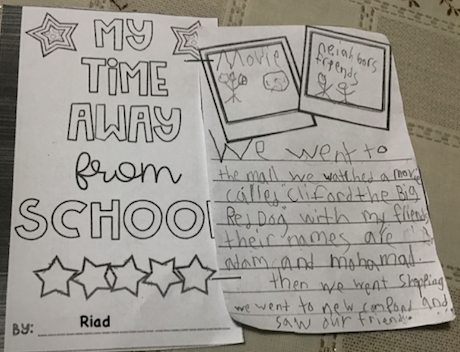 MY
TIME
AWAY
from
SCHOOL
BY: Riad
Movie
neighbors
friends
We went to
the mall we watched a movie
calley "Cliford the Big
Red Dog" with my friends
their names are
Adam and mohamad.
then we went Shopping
we went to new
and
saw our friends.